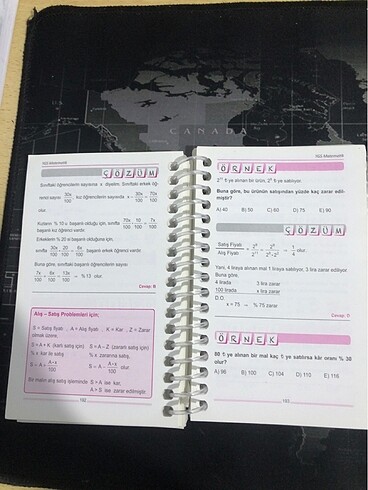 CANADA
YGS Matematik
ÇÖZÜM
Sınıftaki öğrencilerin sayısına x diyelim. Sınıftaki erkek öğ-
renci sayısı 30x/100 kız öğrencilerin sayısında x - 30x/100 = 70x/100
olur.
Kızların % 10 u başarılı olduğu için, sınıfta 70x/100 · 10/100 = 7x/100
başarılı kız öğrenci vardır.
Erkeklerin % 20 si başarılı olduğu için,
sınıfta 30x/100 · 20/100 = 6x/100 başarılı erkek öğrenci vardır.
Buna göre, sınıftaki başarılı öğrencilerin sayısı
7x/100 + 6x/100 = 13x/100 = % 13 olur.
Cevap: B
Alış – Satış Problemleri için;
S = Satış fiyatı, A = Alış fiyatı, K = Kar, Z = Zarar
olmak üzere,
S = A + K (karlı satış için) S = A – Z (zararlı satış için)
% x kar ile satış % x zararına satış,
S = A + A·x/100 S = A – A·x/100 olur.
Bir malın alış satış işleminde S > A ise kar,
A > S ise zarar edilmiştir.
192
YGS Matematik
ÖRNEK
ye alınan bir ürün, ye satılıyor.
Buna göre, bu ürünün satışından yüzde kaç zarar edil-
miştir?
A) 40 B) 50 C) 60 D) 75 E) 90
ÇÖZÜM
Satış Fiyatı/Alış Fiyatı = = 1/4 olur.
Yani, 4 liraya alınan mal 1 liraya satılıyor, 3 lira zarar ediliyor
Buna göre,
4 lirada 3 lira zarar
100 lirada x lira zarar
D.O
x = 75 → % 75 zarar
Cevap: D
ÖRNEK
80 ₺ ye alınan bir mal kaç ₺ ye satılırsa kâr oranı % 30
olur?
A) 96 B) 100 C) 104 D) 110 E) 116
193